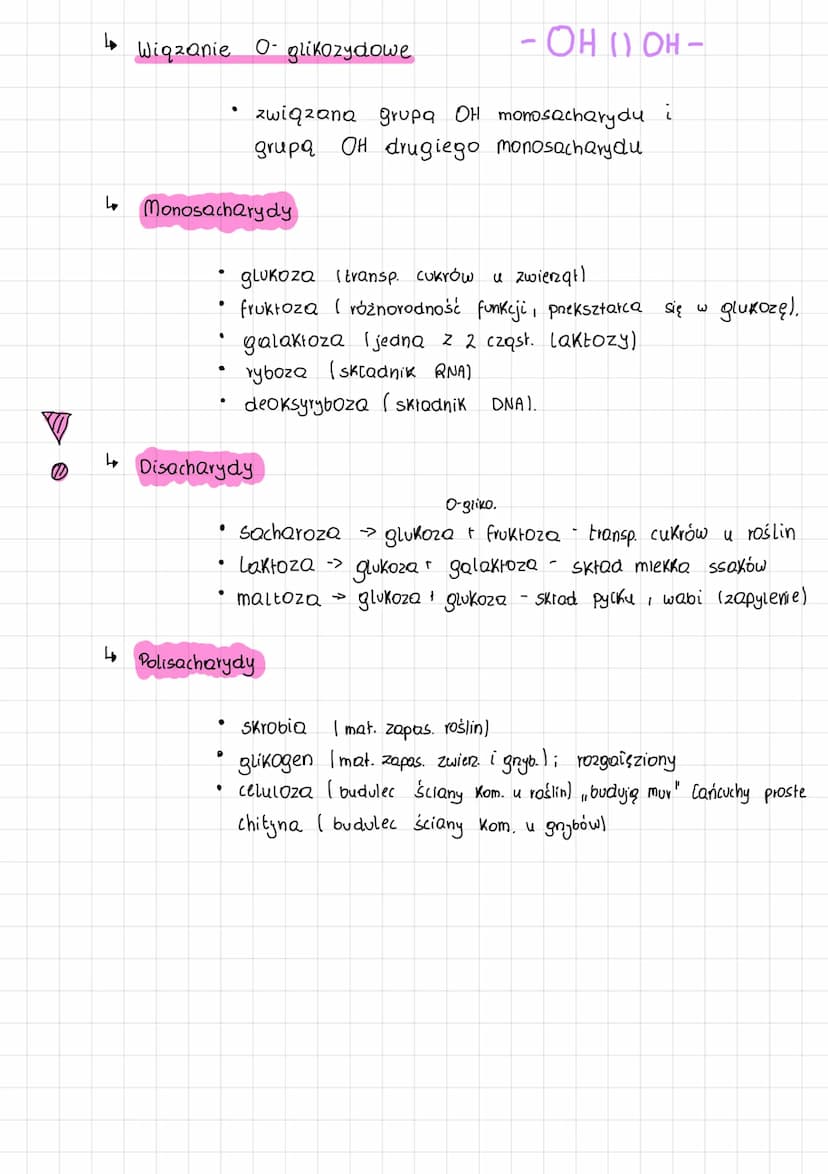 ↳ Wiązanie O-glikozydowe - OH () OH -
• związana grupą OH monosacharydu i
grupą OH drugiego monosacharydu
↳ Monosacharydy
• glukoza (transp. cukrów u zwierząt)
• fruktoza (różnorodność funkcji, przekształca się w glukozę).
• galaktoza (jedna z 2 cząst. laktozy)
• ryboza (składnik RNA)
• deoksyryboza (składnik DNA).
↳ Disacharydy
O-gliko.
• sacharoza → glukoza + fruktoza - transp. cukrów u roślin
• laktoza -> glukoza + galaktoza - skład mlekka ssaków
• maltoza → glukoza + glukoza - skład pyłku, wabi (zapylenie)
↳ Polisacharydy
• skrobia (mat. zapas. roślin)
• glikogen (mat. zapas. zwierz. i grzyb.); rozgałęziony
• celuloza (budulec ściany kom. u roślin) „budują mur" łańcuchy proste
chityna (budulec ściany kom. u grzybów)